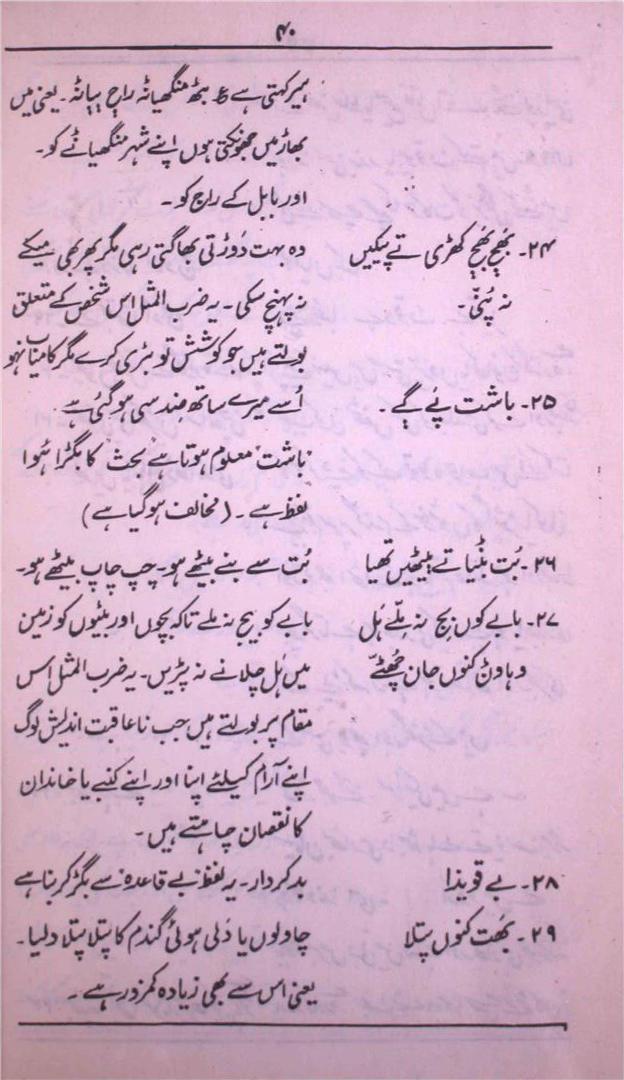 ۴۰
ہیر کہتی ہے ع بٹھ منگھیانہ راج بیانہ۔ یعنی میں
بھاڑ میں جھونکتی ہوں اپنے شہر منگھیانے کو۔
اور بابل کے راج کو۔
۲۴۔ بُھج بُھج کھڑی تے پیکیں وہ بہت دَوڑتی بھاگتی رہی مگر پھر بھی میکے
نہ پُنّی۔ نہ پہنچ سکی۔ یہ ضرب المثل اس شخص کے متعلق
بولتے ہیں جو کوشش تو بڑی کرے مگر کامیاب نہ ہو
۲۵۔ باشت پے گے۔ اُسے میرے ساتھ ضد سی ہوگئی ہے
باشت معلوم ہوتا ہے بحث کا بگڑا ہُوا
لفظ ہے۔ (مخالف ہوگیا ہے)
۲۶۔ بُت بٹیاتے بیٹھیں تھیا بُت سے بنے بیٹھے ہو۔ چپ چاپ بیٹھے ہو۔
۲۷۔ بابے کوں بج نہ ملے ہل بابے کو بیج نہ ملے تاکہ بچوں اور بیٹوں کو زمین
وہاون کنوں جان چُھٹے میں ہل چلانے نہ پڑیں۔ یہ ضرب المثل اس
مقام پر بولتے ہیں جب ناعاقبت اندیش لوگ
اپنے آرام کیلئے اپنا اور اپنے کنبے یا خاندان
کا نقصان چاہتے ہیں۔
۲۸۔ بے قویذا بدکردار۔ یہ لفظ بے قاعدہ سے بگڑ کر بنا ہے
۲۹۔ بَھت کنوں پتلا چاولوں یا دَلی ہوئی گندم کا پتلا پتلا دلیا۔
یعنی اس سے بھی زیادہ کمزور ہے۔